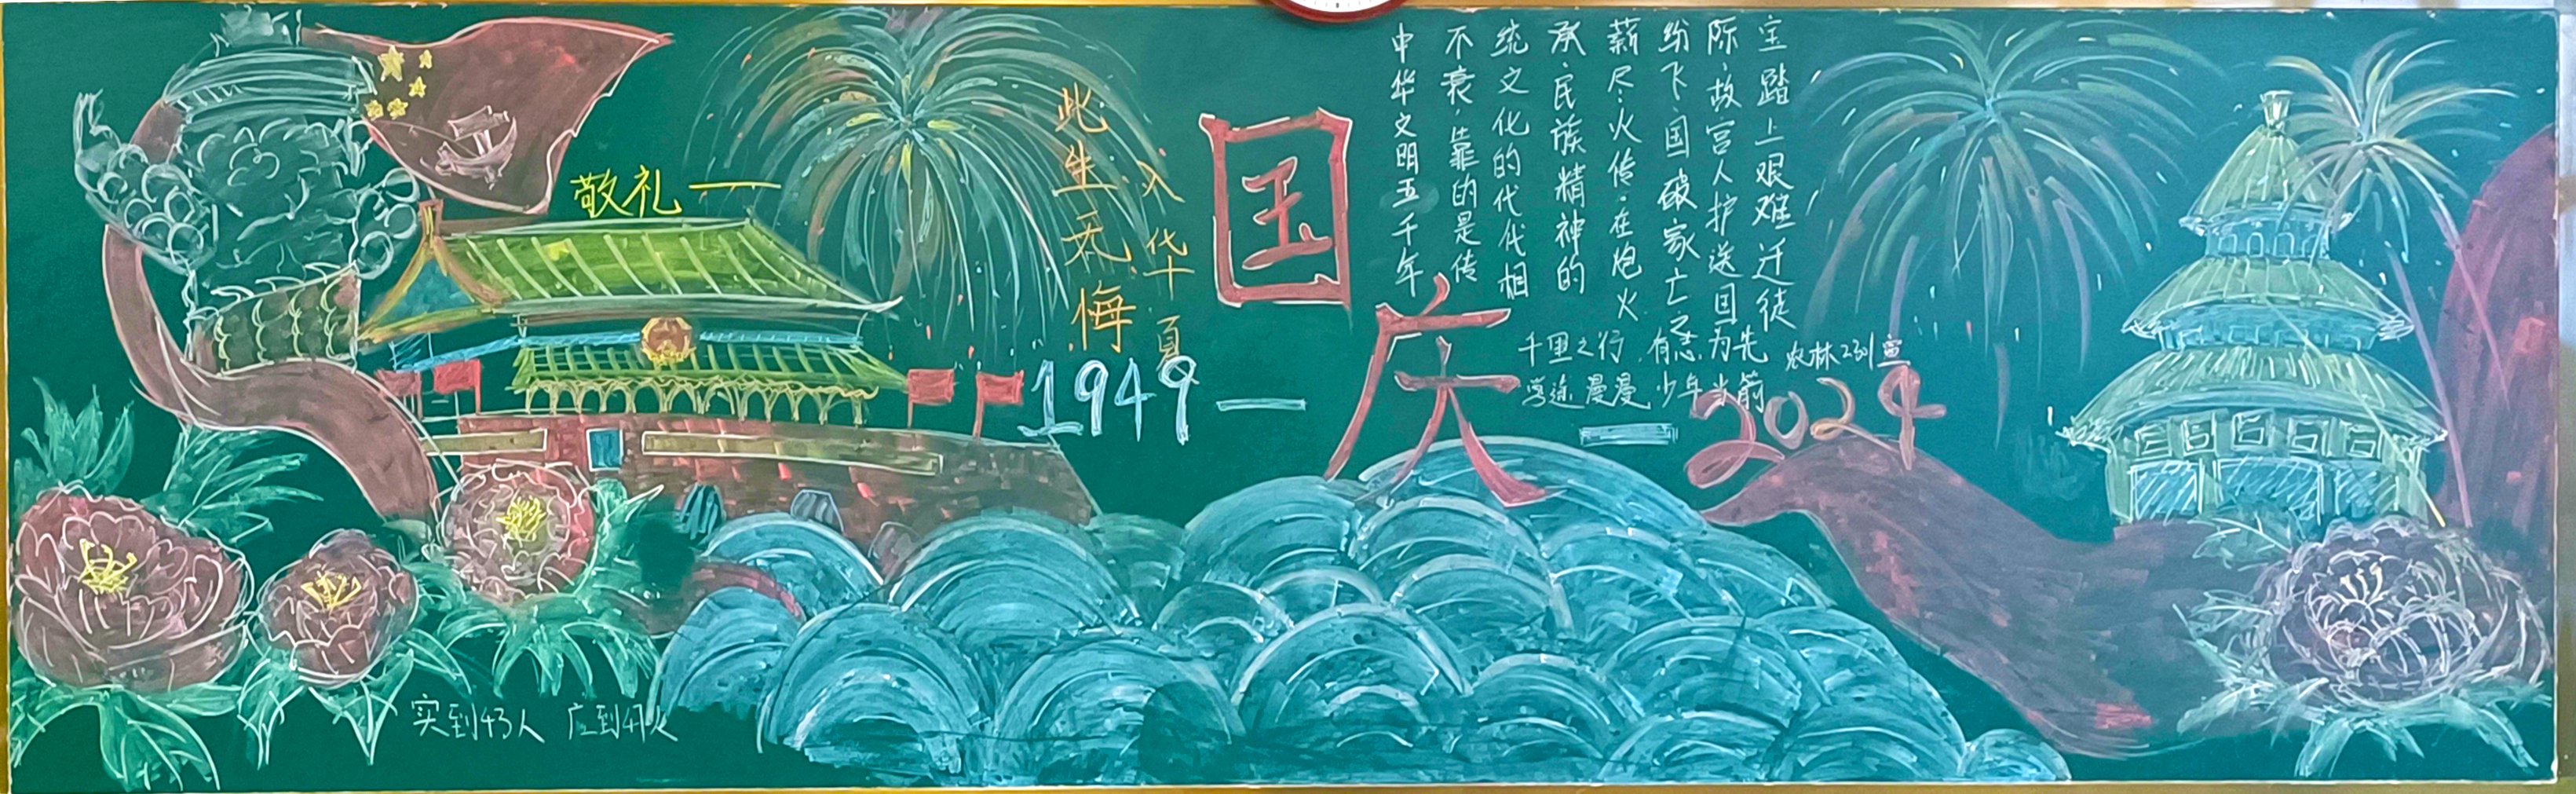 敬礼一
此生无悔
入华夏
国庆
1949—
—2024
中华文明五千年
不衰,靠的是传
统文化的代代相
承,民族精神的
薪尽火传.在炮火
纷飞.国破家亡之
际,故宫人护送国
宝踏上艰难迁徒
千里之行 有志为先
漫漫 少年当前
农林2301宣
实到43人 应到47人